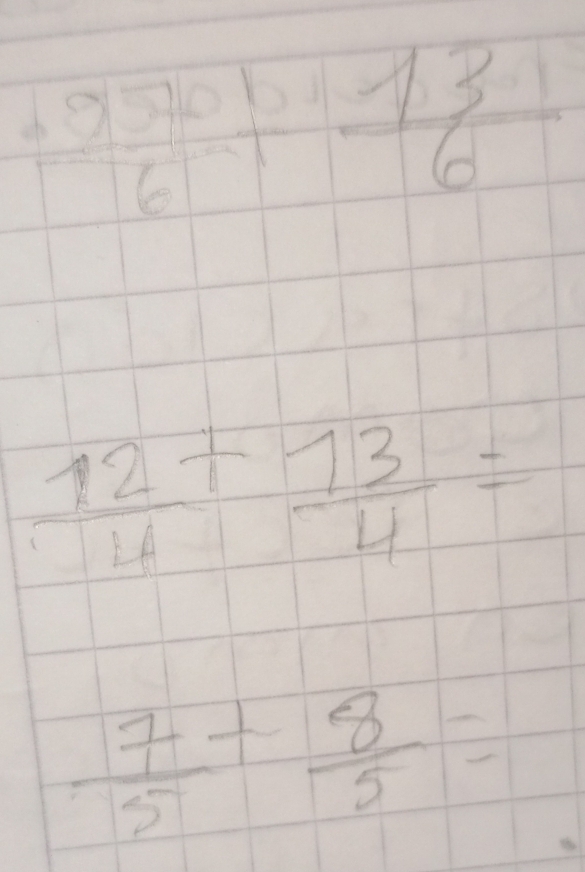 + 13/6
12/4 + 13/4 =
7/5 + 8/5 =